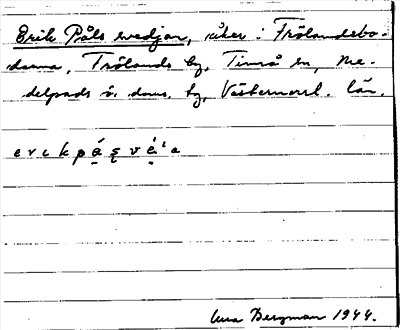 Erik Påls svedjan, åker i Frölandsbo-
darna, Frölands by, Timrå sn, Me-
delpads ö. doms. hg, Västernorrl. län.
erikpá̱s̨vé̱ᶦa
Bergman 1944.